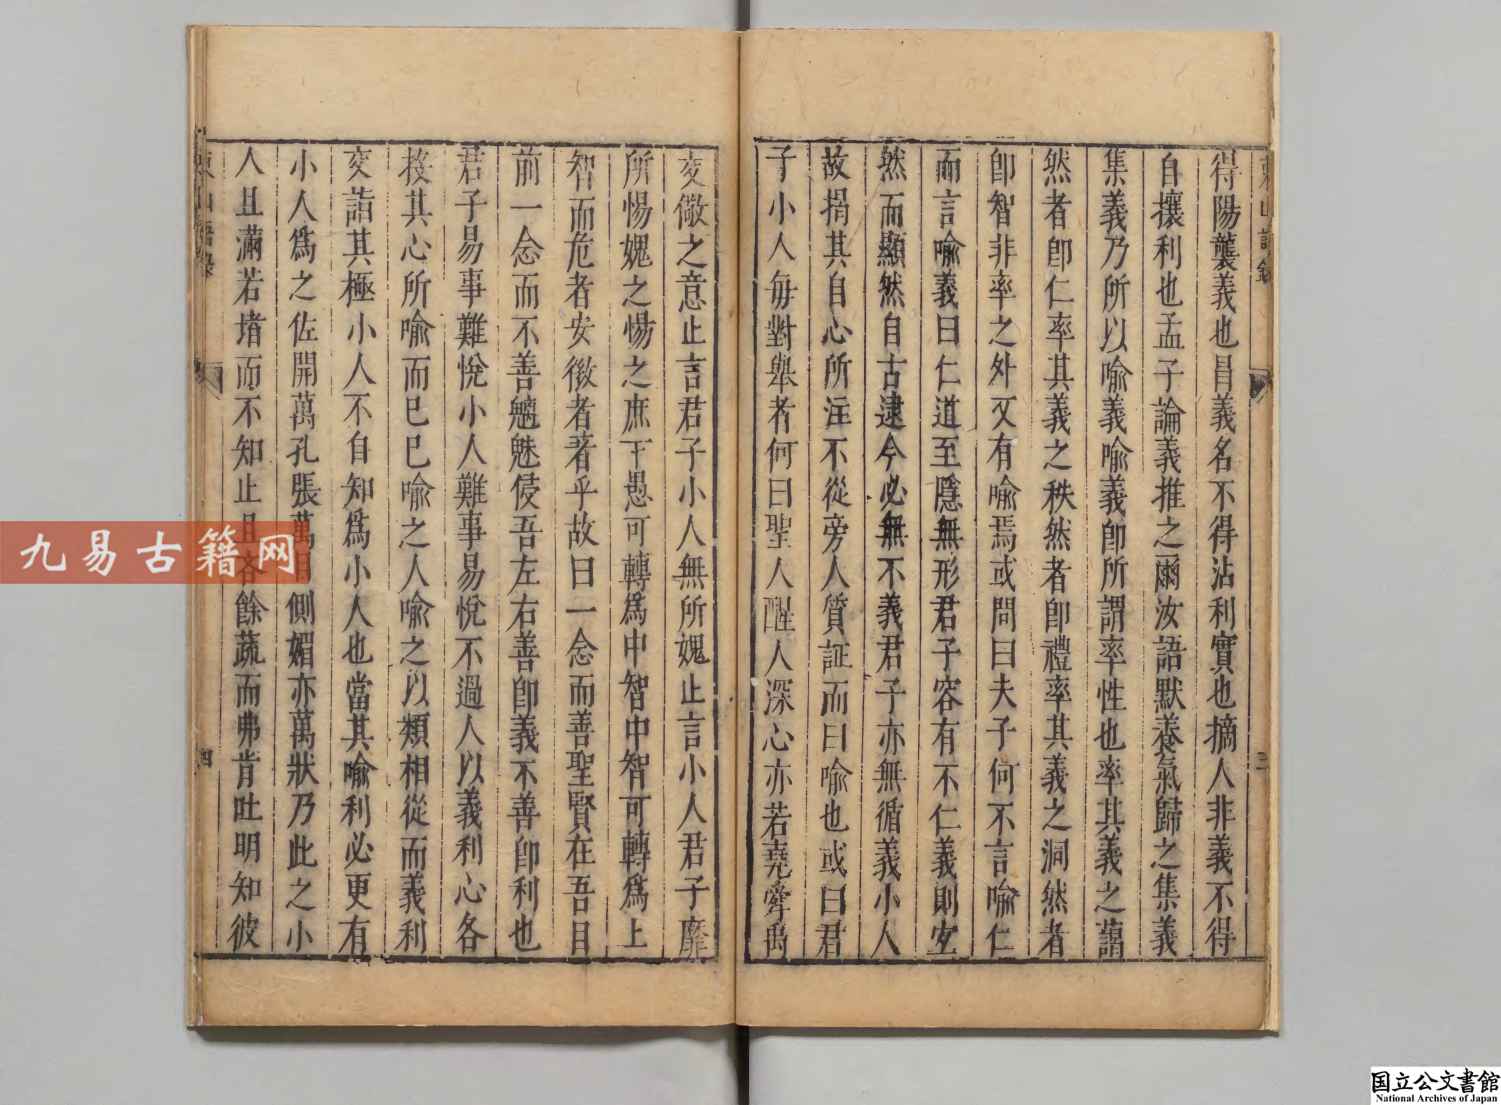 得陽襲義也昌義名不得沾利實也摘人非義不得
自攘利也孟子論義推之爾汝語默養氣歸之集義
集義乃所以喻義喻義即所謂率性也率其義之藹
然者即仁率其義之秩然者即禮率其義之洞然者
即智非率之外又有喻焉或問曰夫子何不言喻仁
而言喻義曰仁道至隱無形君子容有不仁義則空
然而顯然自古逮今必無不義君子亦無循義小人
故揭其自心所注不從旁人質証而曰喻也或曰君
子小人毎對舉者何曰聖人醒人深心亦若堯舜禹
交儆之意止言君子小人無所媿止言小人君子靡
所惕媿之惕之庶下愚可轉爲中智中智可轉爲上
智而危者安微者著乎故曰一念而善聖賢在吾目
前一念而不善魑魅侵吾左右善即義不善即利也
君子易事難悅小人難事易悅不過人以義利心各
投其心所喻而已已喻之人喻之以類相從而義利
交詣其極小人不自知爲小人也當其喻利必更有
小人爲之佐開萬孔張萬目側媚亦萬狀乃此之小
人且滿若堵而不知止且吝餘蔬而弗肯吐明知彼
三
四
九易古籍网
国立公文書館
National Archives of Japan